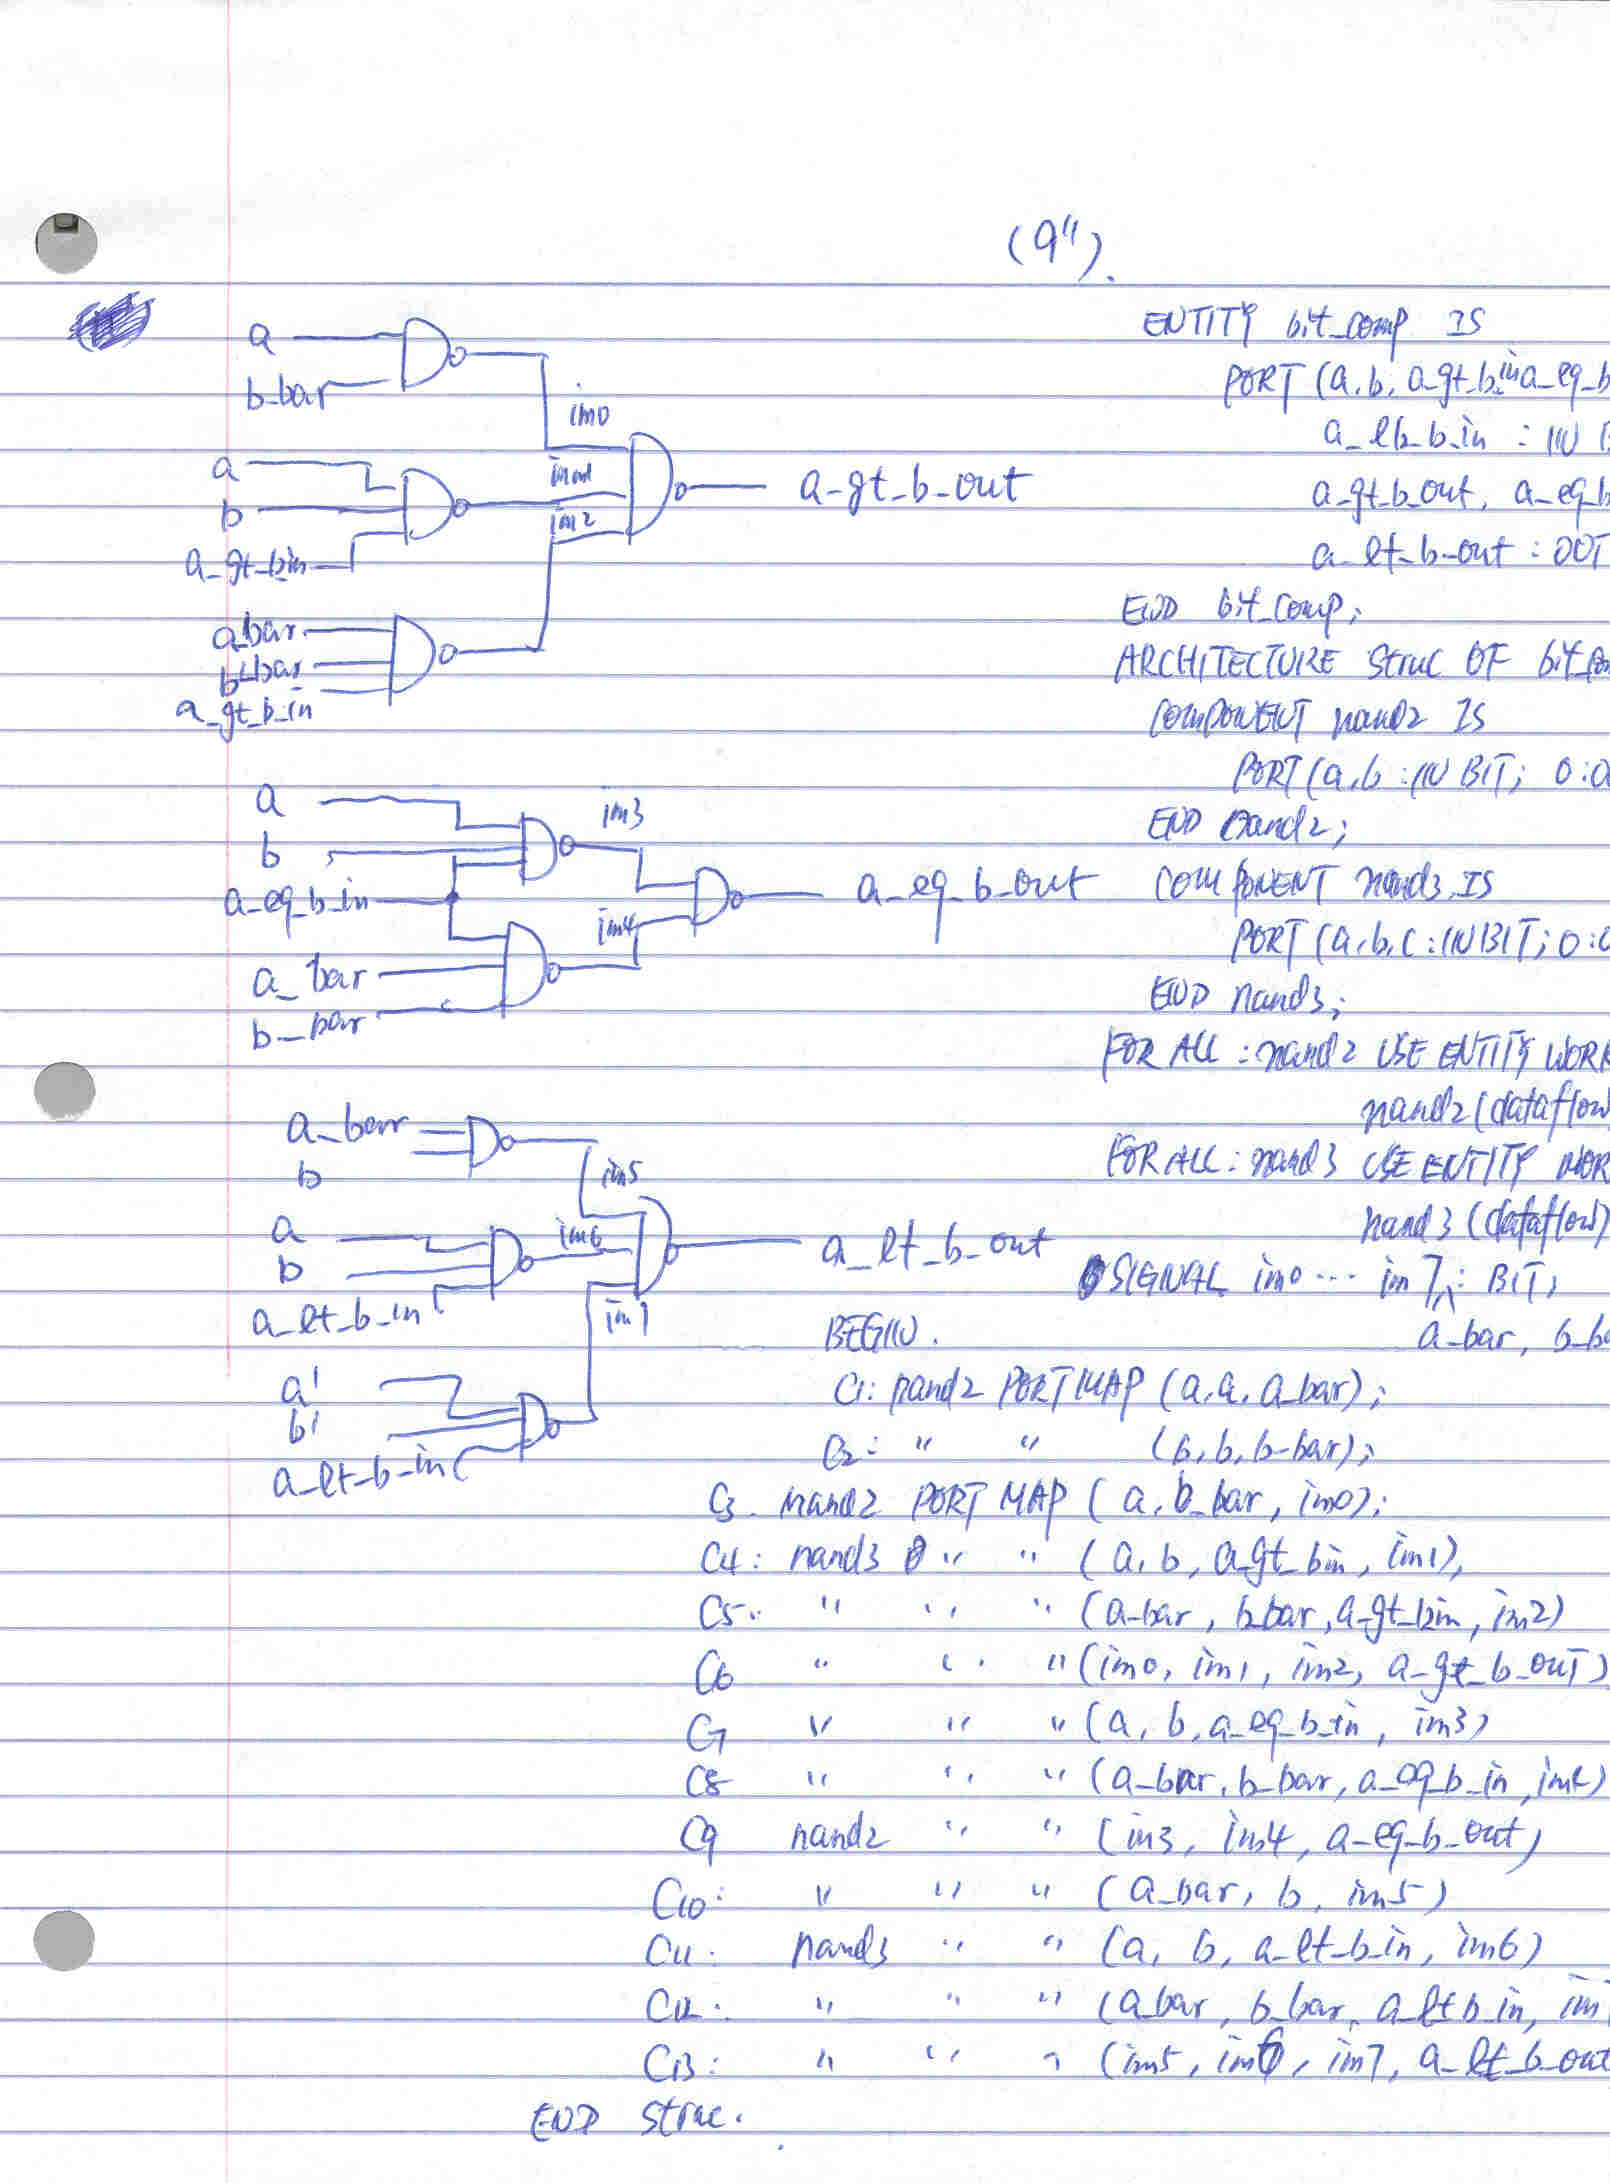 (9").
a
b_bar
im0
a
b
a_gt_bin
im2
a_gt_b_out
a_bar
b_bar
a_gt_b_in
a
b
a_eq_b_in
im3
a_bar
b_bar
im4
a_eq_b_out
a_bar
b
im5
a
b
a_lt_b_in
im6
a_lt_b_out
a'
b'
a_lt_b_in
im7
ENTITY bit_comp IS
PORT (a, b, a_gt_b_in a_eq_b
a_lt_b_in : IN B
a_gt_b_out, a_eq_b
a_lt_b_out : OUT
END bit_comp;
ARCHITECTURE struc OF bit_com
COMPONENT nand2 IS
PORT (a,b : IN BIT; o : o
END nand2;
COMPONENT nand3 IS
PORT (a, b, c : IN BIT; o : o
END nand3;
FOR ALL : nand2 USE ENTITY WORK
nand2 (dataflow
FOR ALL : nand3 USE ENTITY WOR
nand3 (dataflow)
SIGNAL im0 ... im7 : BIT;
a_bar, b_ba
BEGIN.
C1: nand2 PORT MAP (a, a, a_bar);
C2: " " (b, b, b-bar);
C3. nand2 PORT MAP (a, b_bar, im0);
C4: nand3 " " (a, b, a_gt_bin, im1),
C5: " " " (a-bar, b_bar, a_gt_bin, im2)
C6 " " " (im0, im1, im2, a_gt_b_out)
C7 " " " (a, b, a_eq_b_in, im3)
C8 " " " (a_bar, b_bar, a_eq_b_in, im4)
C9 nand2 " " (im3, im4, a_eq_b_out)
C10: " " " (a_bar, b, im5)
C11: nand3 " " (a, b, a_lt_b_in, im6)
C12: " " " (a_bar, b_bar, a_lt_b_in, im
C13: " " " (im5, im6, im7, a_lt_b_out
END struc.